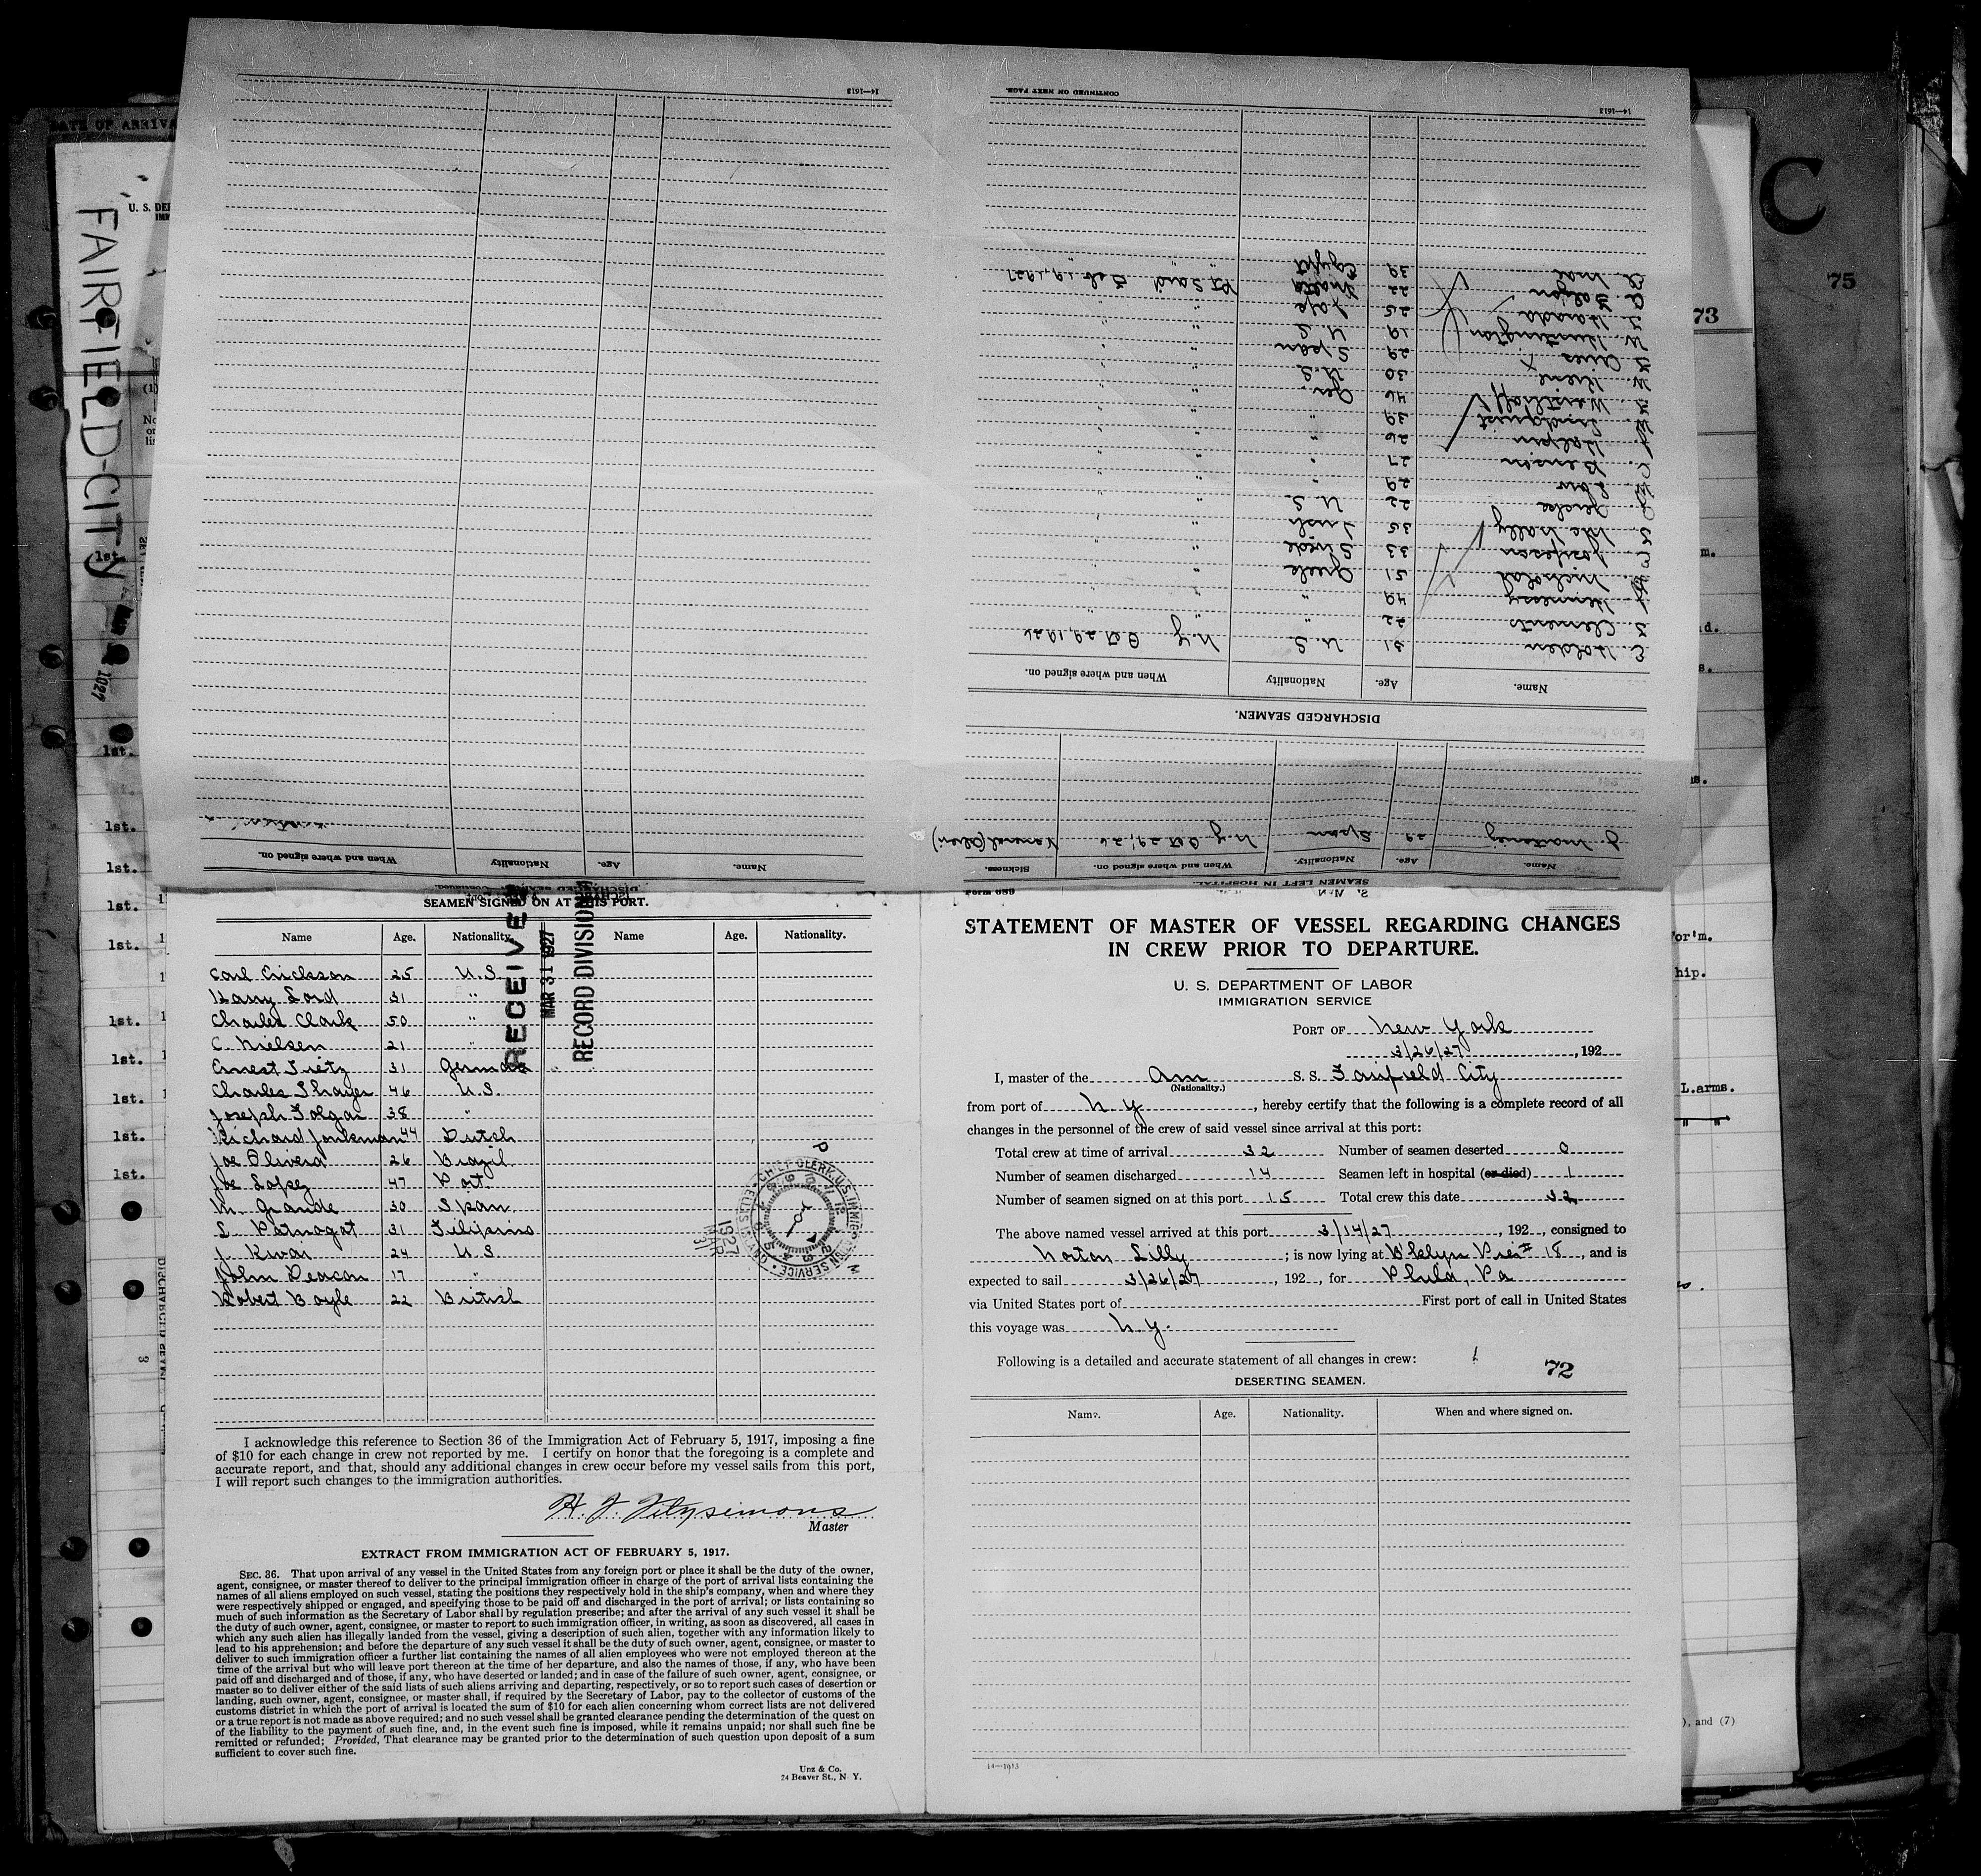 CONTINUED ON NEXT PAGE.
14—1613
14—1613
DISCHARGED SEAMEN.
Name. Age. Nationality When and where signed on.
C. Holden 31 U.S. N.Y Oct 29, 1926
J. Clements 22 " "
Hennessy 49 " "
Nicholas 51 Greek "
33 Swede "
Mc Nally 35 Irish "
22 U.S. "
Law 29 " "
Benson 27 " "
Halpern 26 " "
Lindquist 39 " "
46 Ger. "
30 U.S. "
29 Span "
W. Huntington 19 U.S. "
Harada 25 Jap "
22 Malta Pt Said Feb 19, 1927
39 Egypt " "
SEAMEN LEFT IN HOSPITAL
Name. Age. Nationality. When and where signed on. Sickness.
J. 29 Span N.Y Oct 29, 26
Name. Age. Nationality When and where signed on.
DATE OF ARRIVA
FAIRFIELD-CITY
U. S. DEP
C
75
73
SEAMEN SIGNED ON AT THIS PORT.
Name Age. Nationality. Name Age. Nationality.
Carl Erickson 25 U.S.
Harry Lord 31 "
Charles Clark 50 "
C. Nielsen 21 "
Ernest Tietz 31 German
Charles Thayer 46 U.S.
Joseph Folgar 38 "
Richard Jonkman 44 Dutch
Joe Olivera 26 Brazil
Joe Lopez 47 Port
M. Grande 30 Span
L. Patnogot 31 Filipino
J. Kwan 24 U S
John Deacon 17 "
Robert Boyle 22 British
RECEIVED
MAR 31 1927
RECORD DIVISION
CHIEF CLERK, U.S. IMMIGRATION SERVICE
ELLIS ISLAND
1927
MAR
31
I acknowledge this reference to Section 36 of the Immigration Act of February 5, 1917, imposing a fine
of $10 for each change in crew not reported by me. I certify on honor that the foregoing is a complete and
accurate report, and that, should any additional changes in crew occur before my vessel sails from this port,
I will report such changes to the immigration authorities.
H. J. Fitzsimons
Master
EXTRACT FROM IMMIGRATION ACT OF FEBRUARY 5, 1917.
SEC. 36. That upon arrival of any vessel in the United States from any foreign port or place it shall be the duty of the owner,
agent, consignee, or master thereof to deliver to the principal immigration officer in charge of the port of arrival lists containing the
names of all aliens employed on such vessel, stating the positions they respectively hold in the ship's company, when and where they
were respectively shipped or engaged, and specifying those to be paid off and discharged in the port of arrival; or lists containing so
much of such information as the Secretary of Labor shall by regulation prescribe; and after the arrival of any such vessel it shall be
the duty of such owner, agent, consignee, or master to report to such immigration officer, in writing, as soon as discovered, all cases in
which any such alien has illegally landed from the vessel, giving a description of such alien, together with any information likely to
lead to his apprehension; and before the departure of any such vessel it shall be the duty of such owner, agent, consignee, or master to
deliver to such immigration officer a further list containing the names of all alien employees who were not employed thereon at the
time of the arrival but who will leave port thereon at the time of her departure, and also the names of those, if any, who have been
paid off and discharged and of those, if any, who have deserted or landed; and in case of the failure of such owner, agent, consignee, or
master so to deliver either of the said lists of such aliens arriving and departing, respectively, or so to report such cases of desertion or
landing, such owner, agent, consignee, or master shall, if required by the Secretary of Labor, pay to the collector of customs of the
customs district in which the port of arrival is located the sum of $10 for each alien concerning whom correct lists are not delivered
or a true report is not made as above required; and no such vessel shall be granted clearance pending the determination of the quest on
of the liability to the payment of such fine, and, in the event such fine is imposed, while it remains unpaid; nor shall such fine be
remitted or refunded; Provided, That clearance may be granted prior to the determination of such question upon deposit of a sum
sufficient to cover such fine.
Unz & Co.
24 Beaver St., N. Y.
Form 689
STATEMENT OF MASTER OF VESSEL REGARDING CHANGES
IN CREW PRIOR TO DEPARTURE.
U. S. DEPARTMENT OF LABOR
IMMIGRATION SERVICE
PORT OF New York
3/26/27, 192
I, master of the Am S. S. Fairfield City
(Nationality.)
from port of N.Y, hereby certify that the following is a complete record of all
changes in the personnel of the crew of said vessel since arrival at this port:
Total crew at time of arrival 32 Number of seamen deserted 0
Number of seamen discharged 14 Seamen left in hospital (or died) 1
Number of seamen signed on at this port 15 Total crew this date 32
The above named vessel arrived at this port 3/14/27, 192, consigned to
Norton Lilly; is now lying at Bklyn Pier # 18, and is
expected to sail 3/26/27, 192, for Phila, Pa
via United States port of First port of call in United States
this voyage was N.Y.
Following is a detailed and accurate statement of all changes in crew:
72
DESERTING SEAMEN.
Name. Age. Nationality. When and where signed on.
14—1613